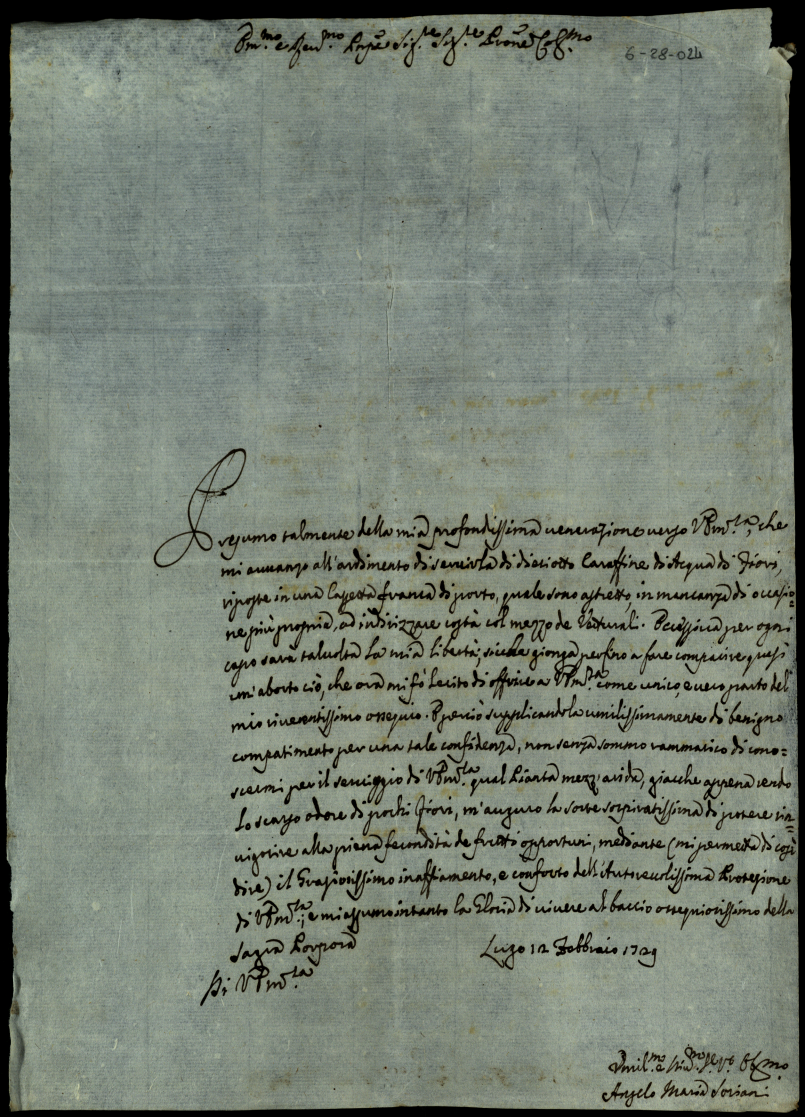 Em.mo e Rev.mo Prpe Sig.re Sig.re Prone Col.mo
6-28-024
Presumo talmente della mia profondissima venerazione verso V Em.za, che
mi avvanzo all'ardimento di servirla di dieciotto Caraffine di Acqua di Fiori,
riposte in una Cassetta franca di porto, quale sono astretto, in mancanza di occasio=
ne più propria, ad indirizzare costà col mezzo de Vetturali. Eccessiva per ogni
capo sarà talvolta la mia libertà, sicche gionga perfino a fare comparire quasi
un'aborto ciò, che ora mi fò lecito di offrire a V Em.za come unico, e vero parto del
mio riverentissimo ossequio. Perciò supplicandola umilissimamente di benigno
compatimento per una tale confidenza, non senza sommo rammarico di cono=
scermi per il serviggio di V Em.za qual Pianta mezz'arida, giacche appena rendo
lo scarso odore di pochi Fiori, m'auguro la sorte sospiratissima di potere rin=
vigorire alla piena fecondità de frutti opportuni, mediante (mi permetta di così
dire) il Graziosissimo inaffiamento, e conforto dell'Autorevolissima Protezione
di V Em.za; e mi assumo intanto la Gloria di vivere al baccio ossequiosissimo della
Sagra Porpora
Lugo 12 Febbraio 1729
Di V Em.za
Umil.mo e Div.mo Se.re Obl.mo
Angelo Maria Soriani